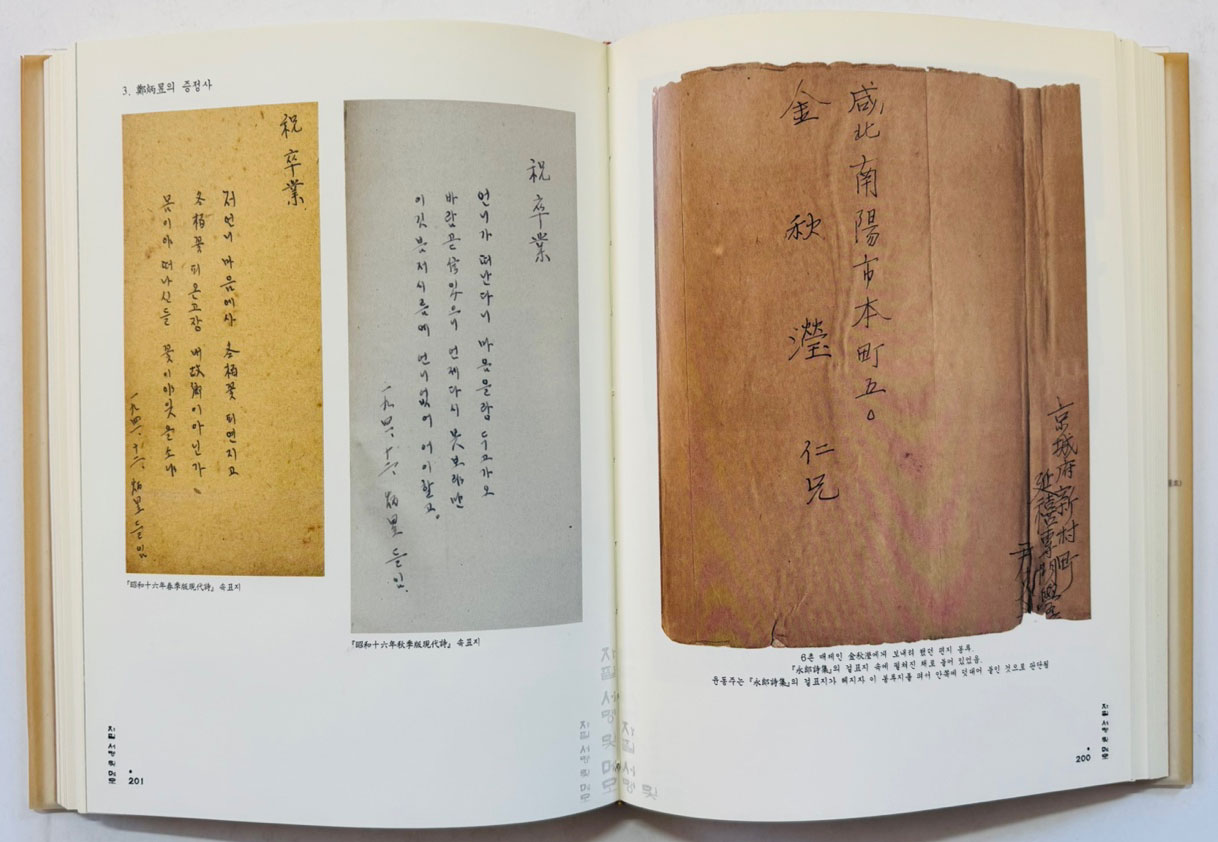 咸北南陽市本町五。
金秋瀅 仁兄
京城府新村町
延禧專門學
尹
6촌 매제인 金秋瀅에게 보내려 했던 편지 봉투.
『永郎詩集』의 겉표지 속에 펼쳐진 채로 들어 있었음.
윤동주는 『永郎詩集』의 겉표지가 헤지자 이 봉투지를 뜯어 안쪽에 덧대어 붙인 것으로 판단됨
자필 서명 및 메모
200
3. 鄭炳昱의 증정사
祝卒業
언니가 떠난다니 마음을랑 두고가오
바람곧 信있으니 언제다시 못보랴만
이깃븐저시름에 언니없어 어이할고。
一九四一、十二、 炳昱 들임.
『昭和十六年秋季版現代詩』 속표지
祝卒業
저언니 마음에사 冬栢꽃 퓌연지고
冬栢꽃 퓌온고장 내故鄕이아닌가。
몸이야 떠나신들 꽃이야잊을소냐
一九四一、十二、 炳昱 들임
『昭和十六年春季版現代詩』 속표지
자필 서명 및 메모
201